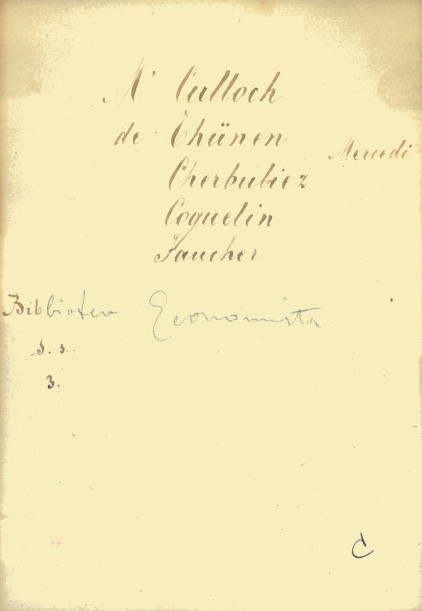 M' Culloch
de Thünen
Mercedi
Cherbuliez
Coquelin
Faucher
Biblioteca Economista
S. s.
3.
C